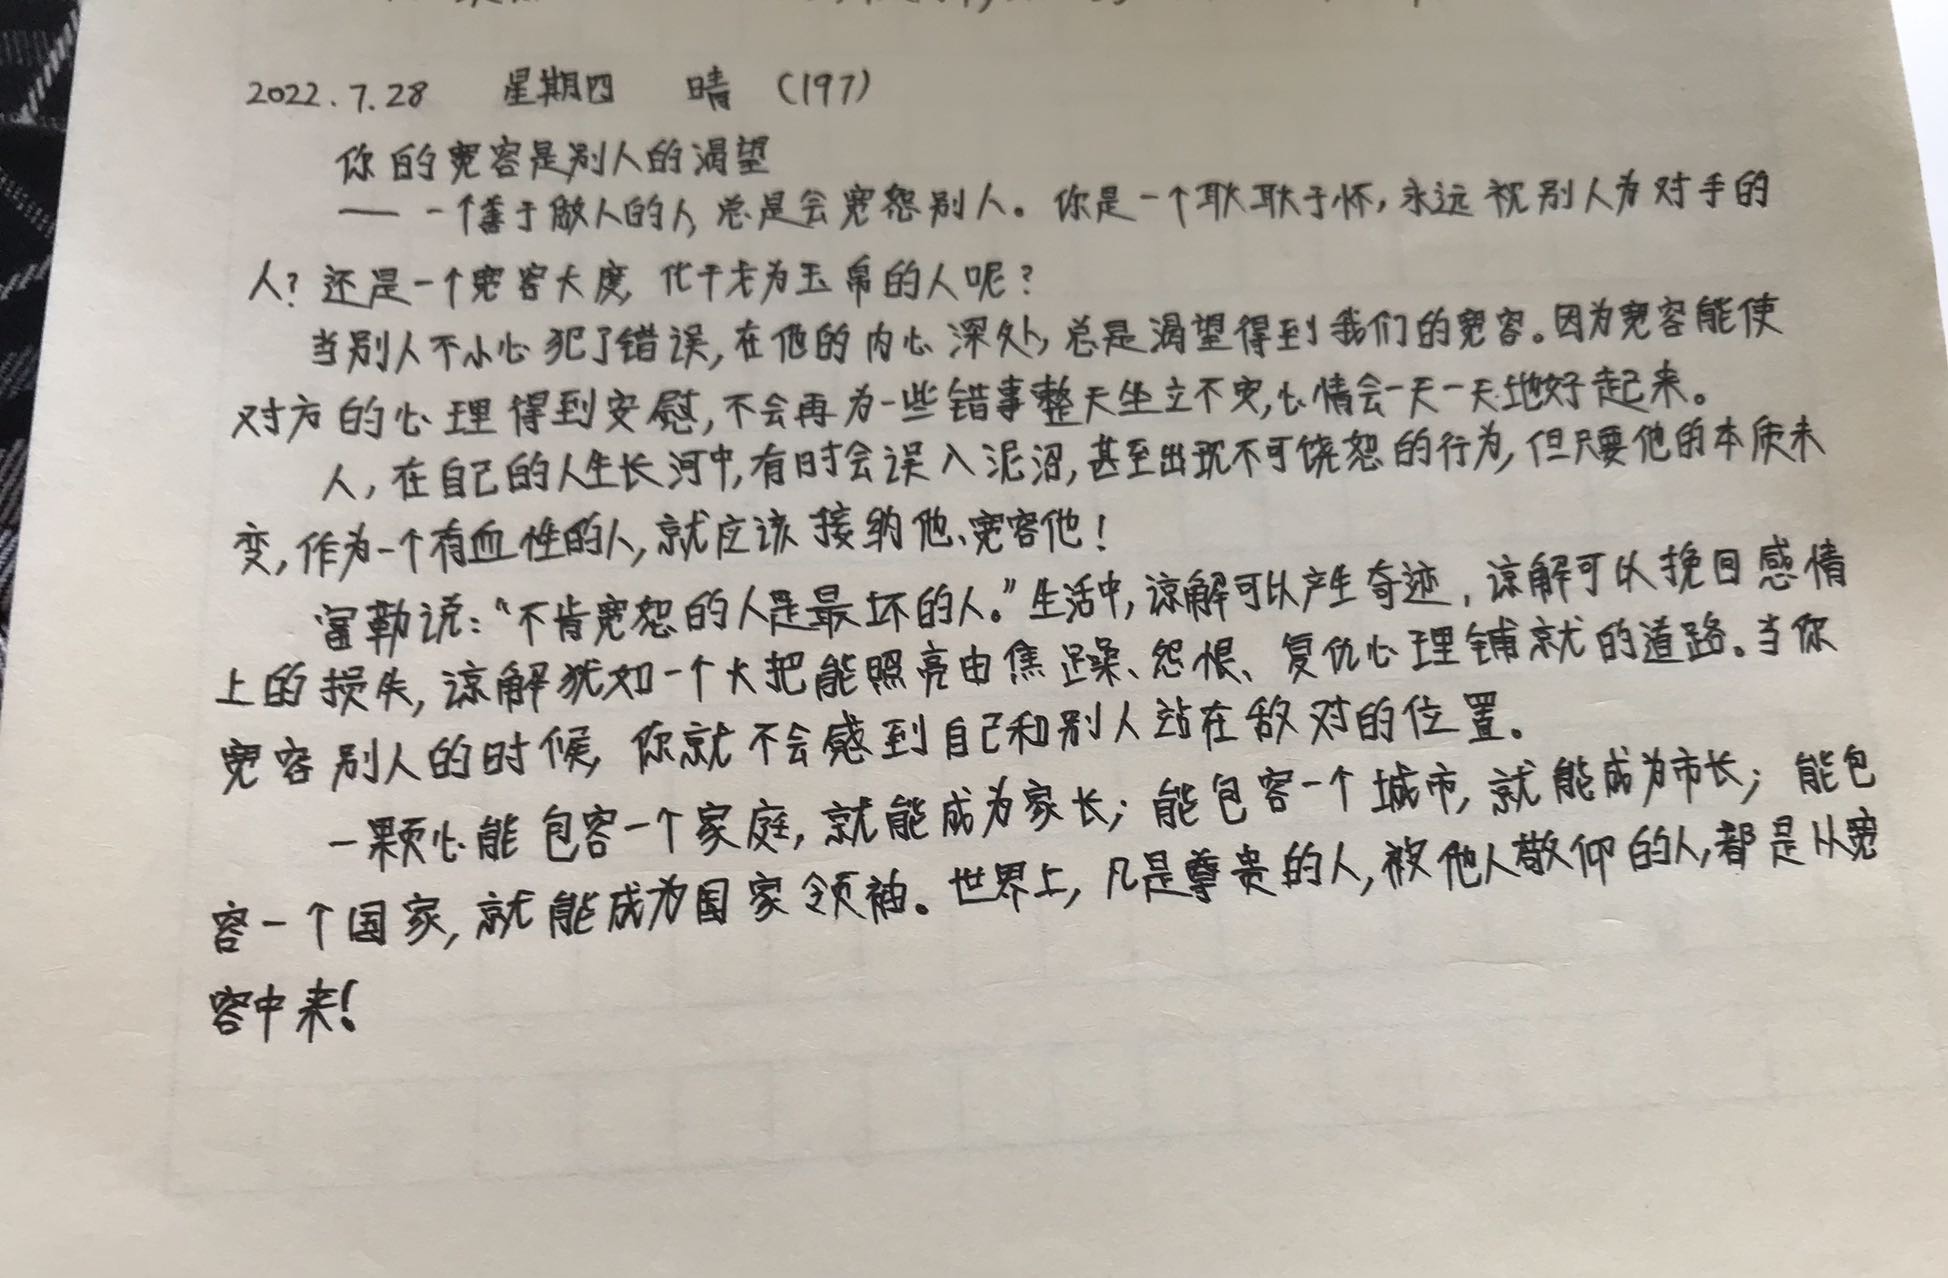 2022.7.28 星期四 晴 (197)
你的宽容是别人的渴望
—— 一个善于做人的人,总是会宽恕别人。你是一个耿耿于怀,永远视别人为对手的
人?还是一个宽容大度,化干戈为玉帛的人呢?
当别人不小心犯了错误,在他的内心深处,总是渴望得到我们的宽容。因为宽容能使
对方的心理得到安慰,不会再为一些错事整天坐立不安,心情会一天一天地好起来。
人,在自己的人生长河中,有时会误入泥沼,甚至出现不可饶恕的行为,但只要他的本质未
变,作为一个有血性的人,就应该接纳他、宽容他!
富勒说:“不肯宽恕的人是最坏的人。”生活中,谅解可以产生奇迹,谅解可以挽回感情
上的损失,谅解犹如一个火把能照亮由焦躁、怨恨、复仇心理铺就的道路。当你
宽容别人的时候,你就不会感到自己和别人站在敌对的位置。
一颗心能包容一个家庭,就能成为家长;能包容一个城市,就能成为市长;能包
容一个国家,就能成为国家领袖。世界上,凡是尊贵的人,被他人敬仰的人,都是从宽
容中来!